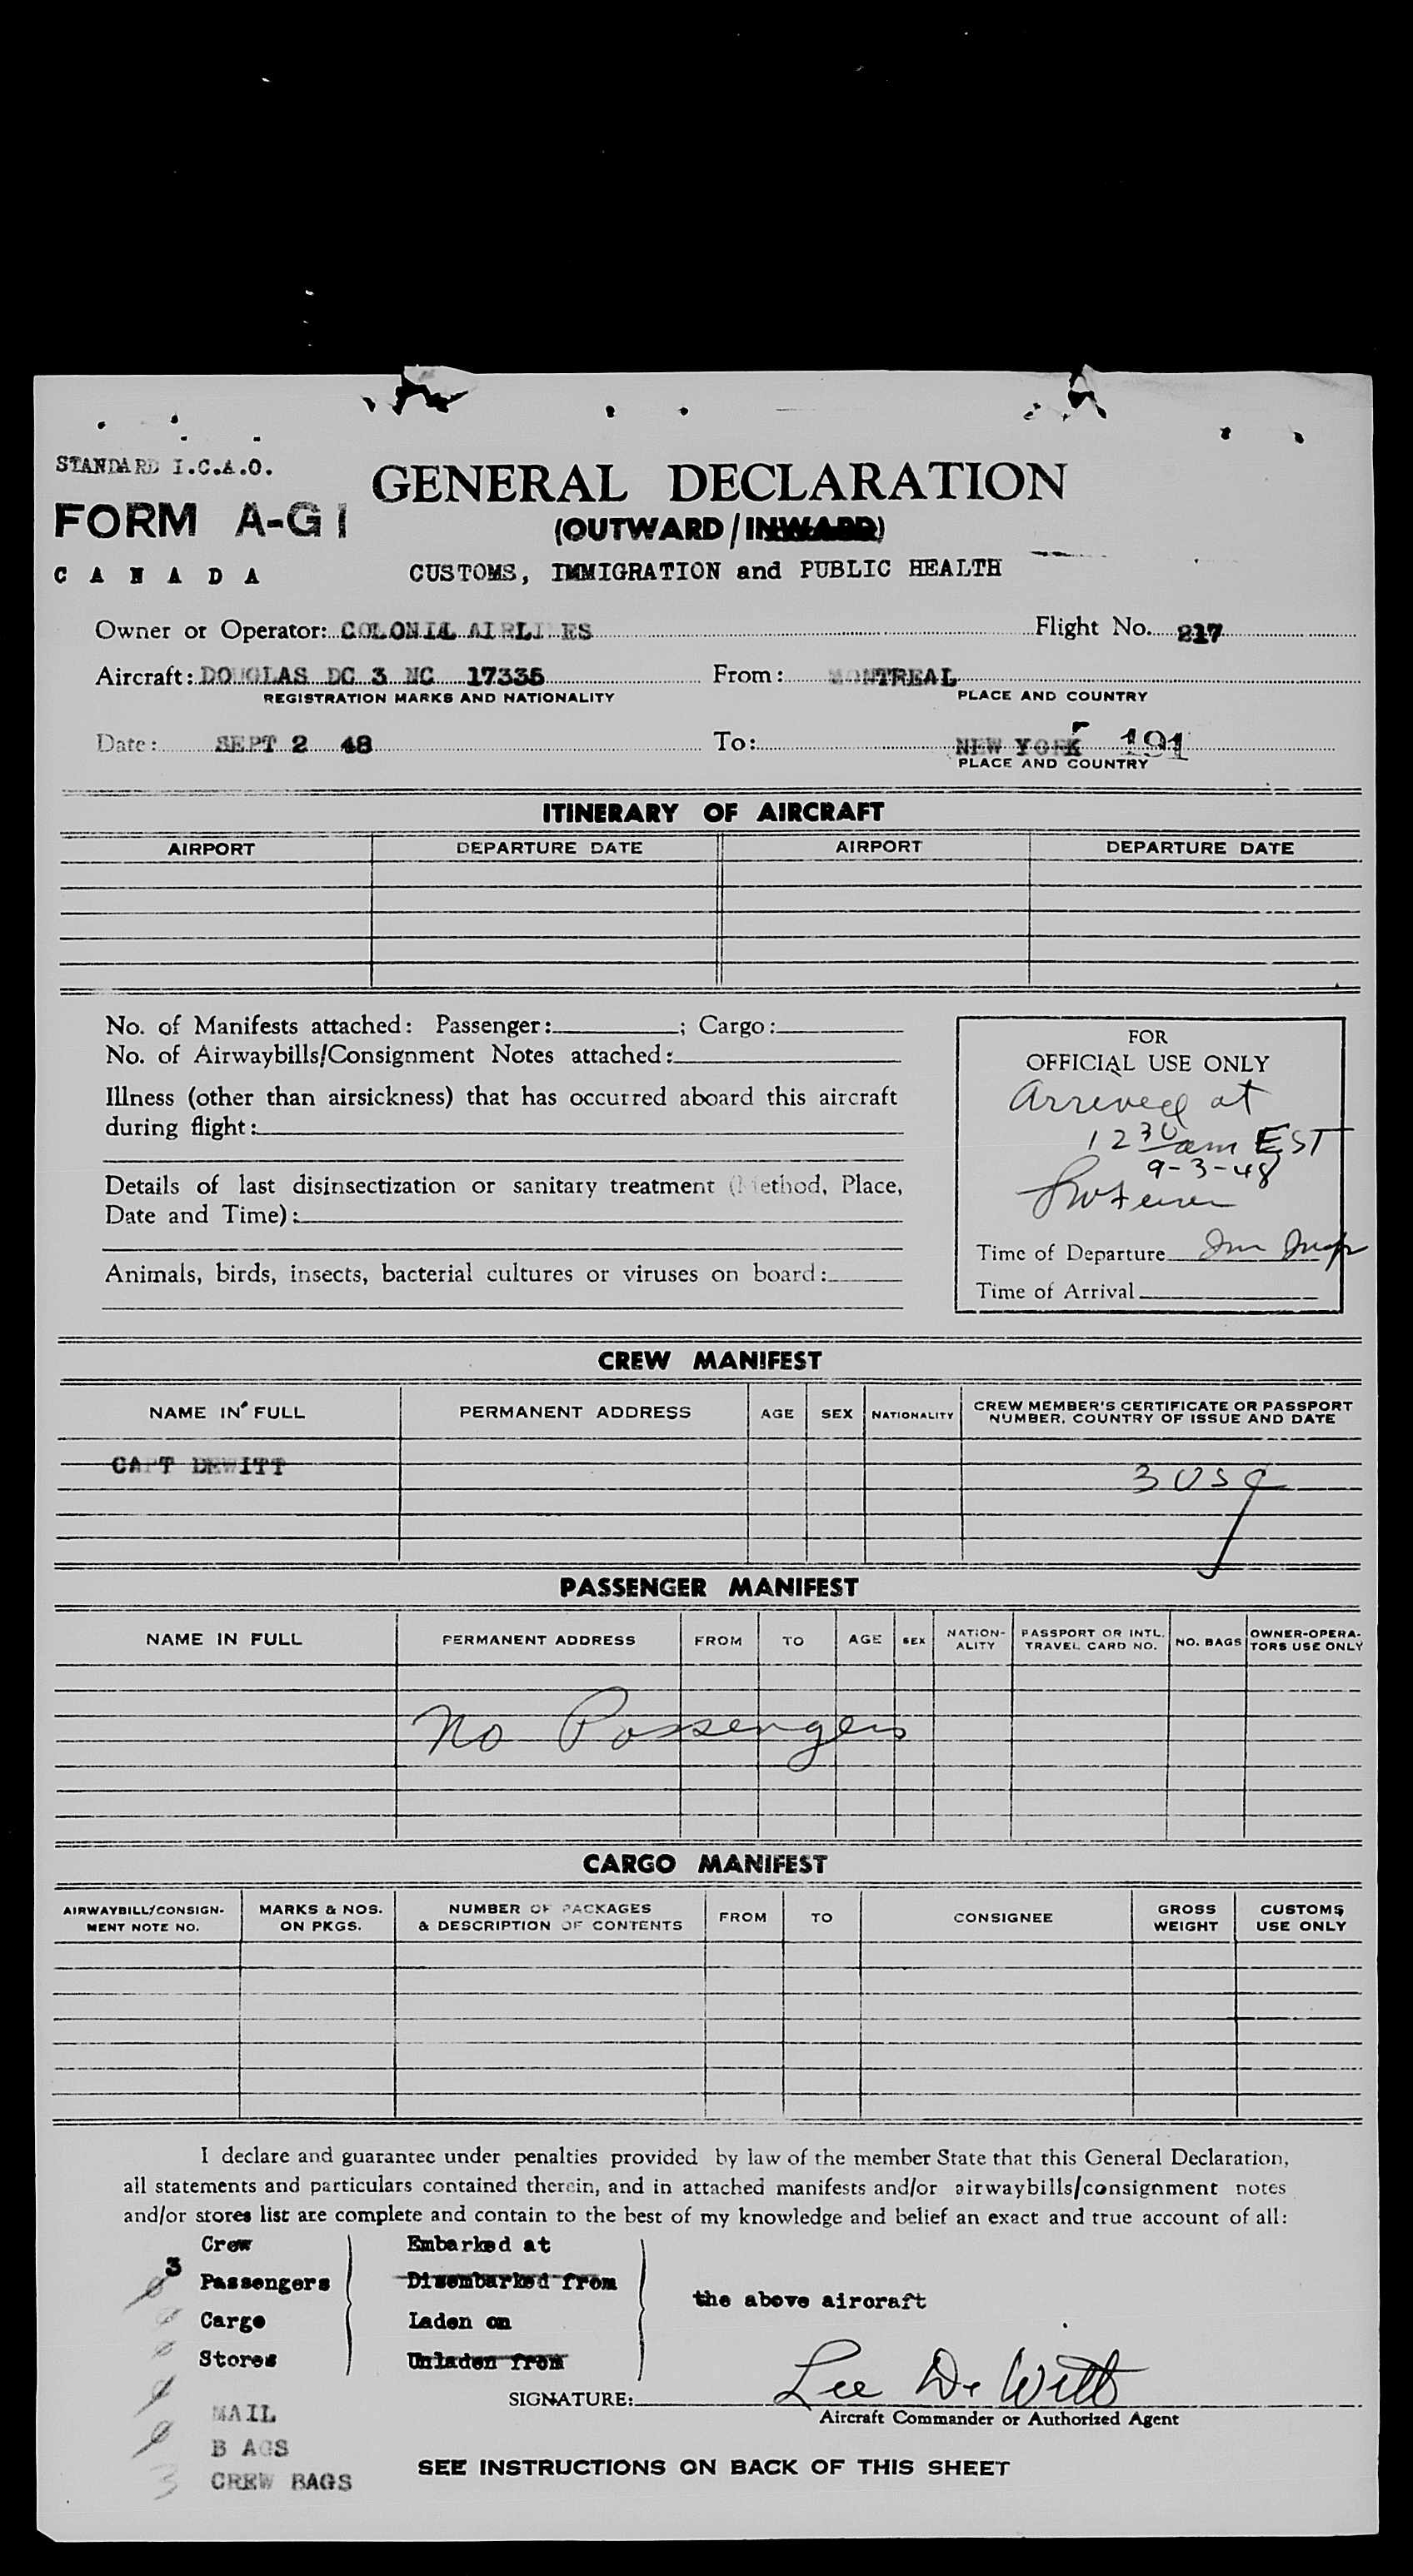 STANDARD I.C.A.O.
GENERAL DECLARATION
FORM A-G1
(OUTWARD/INWARD)
CANADA
CUSTOMS, IMMIGRATION and PUBLIC HEALTH
Owner or Operator: COLONIAL AIRLINES Flight No. 217
Aircraft: DOUGLAS DC 3 NC 17335 From: MONTREAL
REGISTRATION MARKS AND NATIONALITY PLACE AND COUNTRY
Date: SEPT 2 48 To: NEW YORK 191
PLACE AND COUNTRY
ITINERARY OF AIRCRAFT
AIRPORT DEPARTURE DATE AIRPORT DEPARTURE DATE
No. of Manifests attached: Passenger: ; Cargo:
No. of Airwaybills/Consignment Notes attached:
Illness (other than airsickness) that has occurred aboard this aircraft
during flight:
Details of last disinsectization or sanitary treatment (Method, Place,
Date and Time):
Animals, birds, insects, bacterial cultures or viruses on board:
FOR
OFFICIAL USE ONLY
Arrived at
12 30 am EST
9-3-48
Time of Departure Imm Insp
Time of Arrival
CREW MANIFEST
NAME IN FULL PERMANENT ADDRESS AGE SEX NATIONALITY CREW MEMBER'S CERTIFICATE OR PASSPORT
NUMBER, COUNTRY OF ISSUE AND DATE
CAPT DEWITT
3 USC
PASSENGER MANIFEST
NAME IN FULL PERMANENT ADDRESS FROM TO AGE SEX NATION-ALITY PASSPORT OR INTL. TRAVEL CARD NO. NO. BAGS OWNER-OPERA-TORS USE ONLY
No Passengers
CARGO MANIFEST
AIRWAYBILL/CONSIGN-MENT NOTE NO. MARKS & NOS. ON PKGS. NUMBER OF PACKAGES & DESCRIPTION OF CONTENTS FROM TO CONSIGNEE GROSS WEIGHT CUSTOMS USE ONLY
I declare and guarantee under penalties provided by law of the member State that this General Declaration,
all statements and particulars contained therein, and in attached manifests and/or airwaybills/consignment notes
and/or stores list are complete and contain to the best of my knowledge and belief an exact and true account of all:
3 Crew Embarked at
0 Passengers Disembarked from
the above aircraft
0 Cargo Laden on
0 Stores Unladen from
SIGNATURE: Lee De Witt
Aircraft Commander or Authorized Agent
0 MAIL
0 BAGS
3 CREW BAGS
SEE INSTRUCTIONS ON BACK OF THIS SHEET